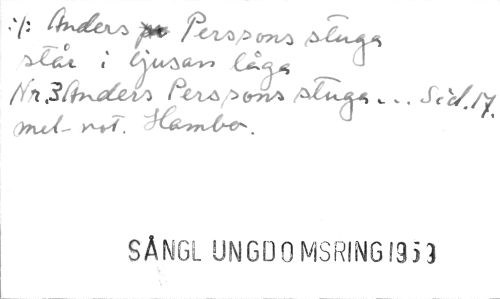 :/: Anders Perssons stuga
står i ljusan låga
Nr.3 Anders Perssons stuga... Sid.17.
mel- not. Hambo.
SÅNGL UNGDOMSRING 1959